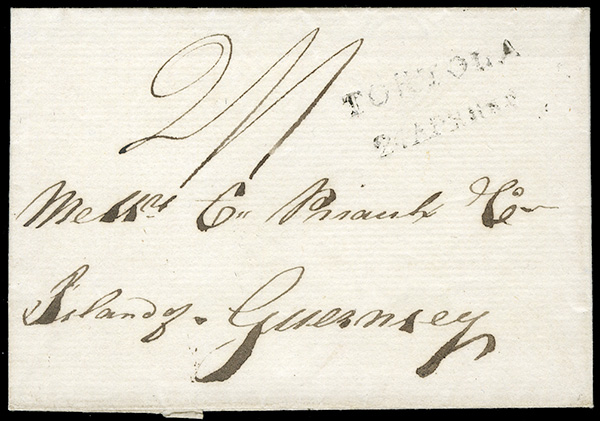 2/11
TORTOLA
Messrs C" Priaulx & Co
Island of Guernsey